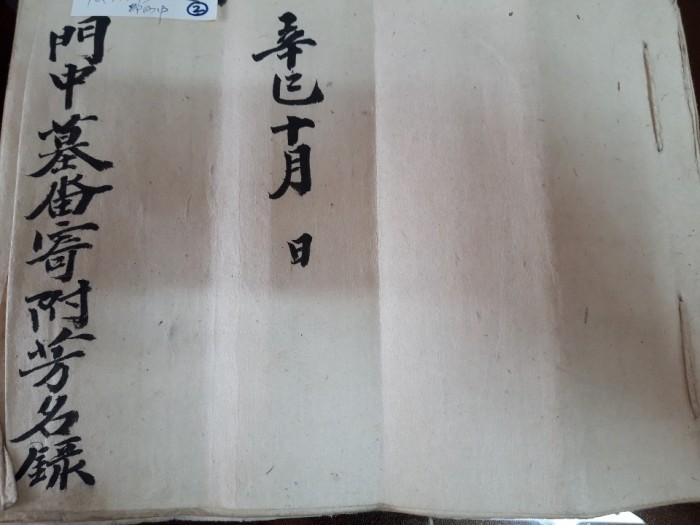 ②
辛巳十月 日
門中墓畓寄附芳名錄